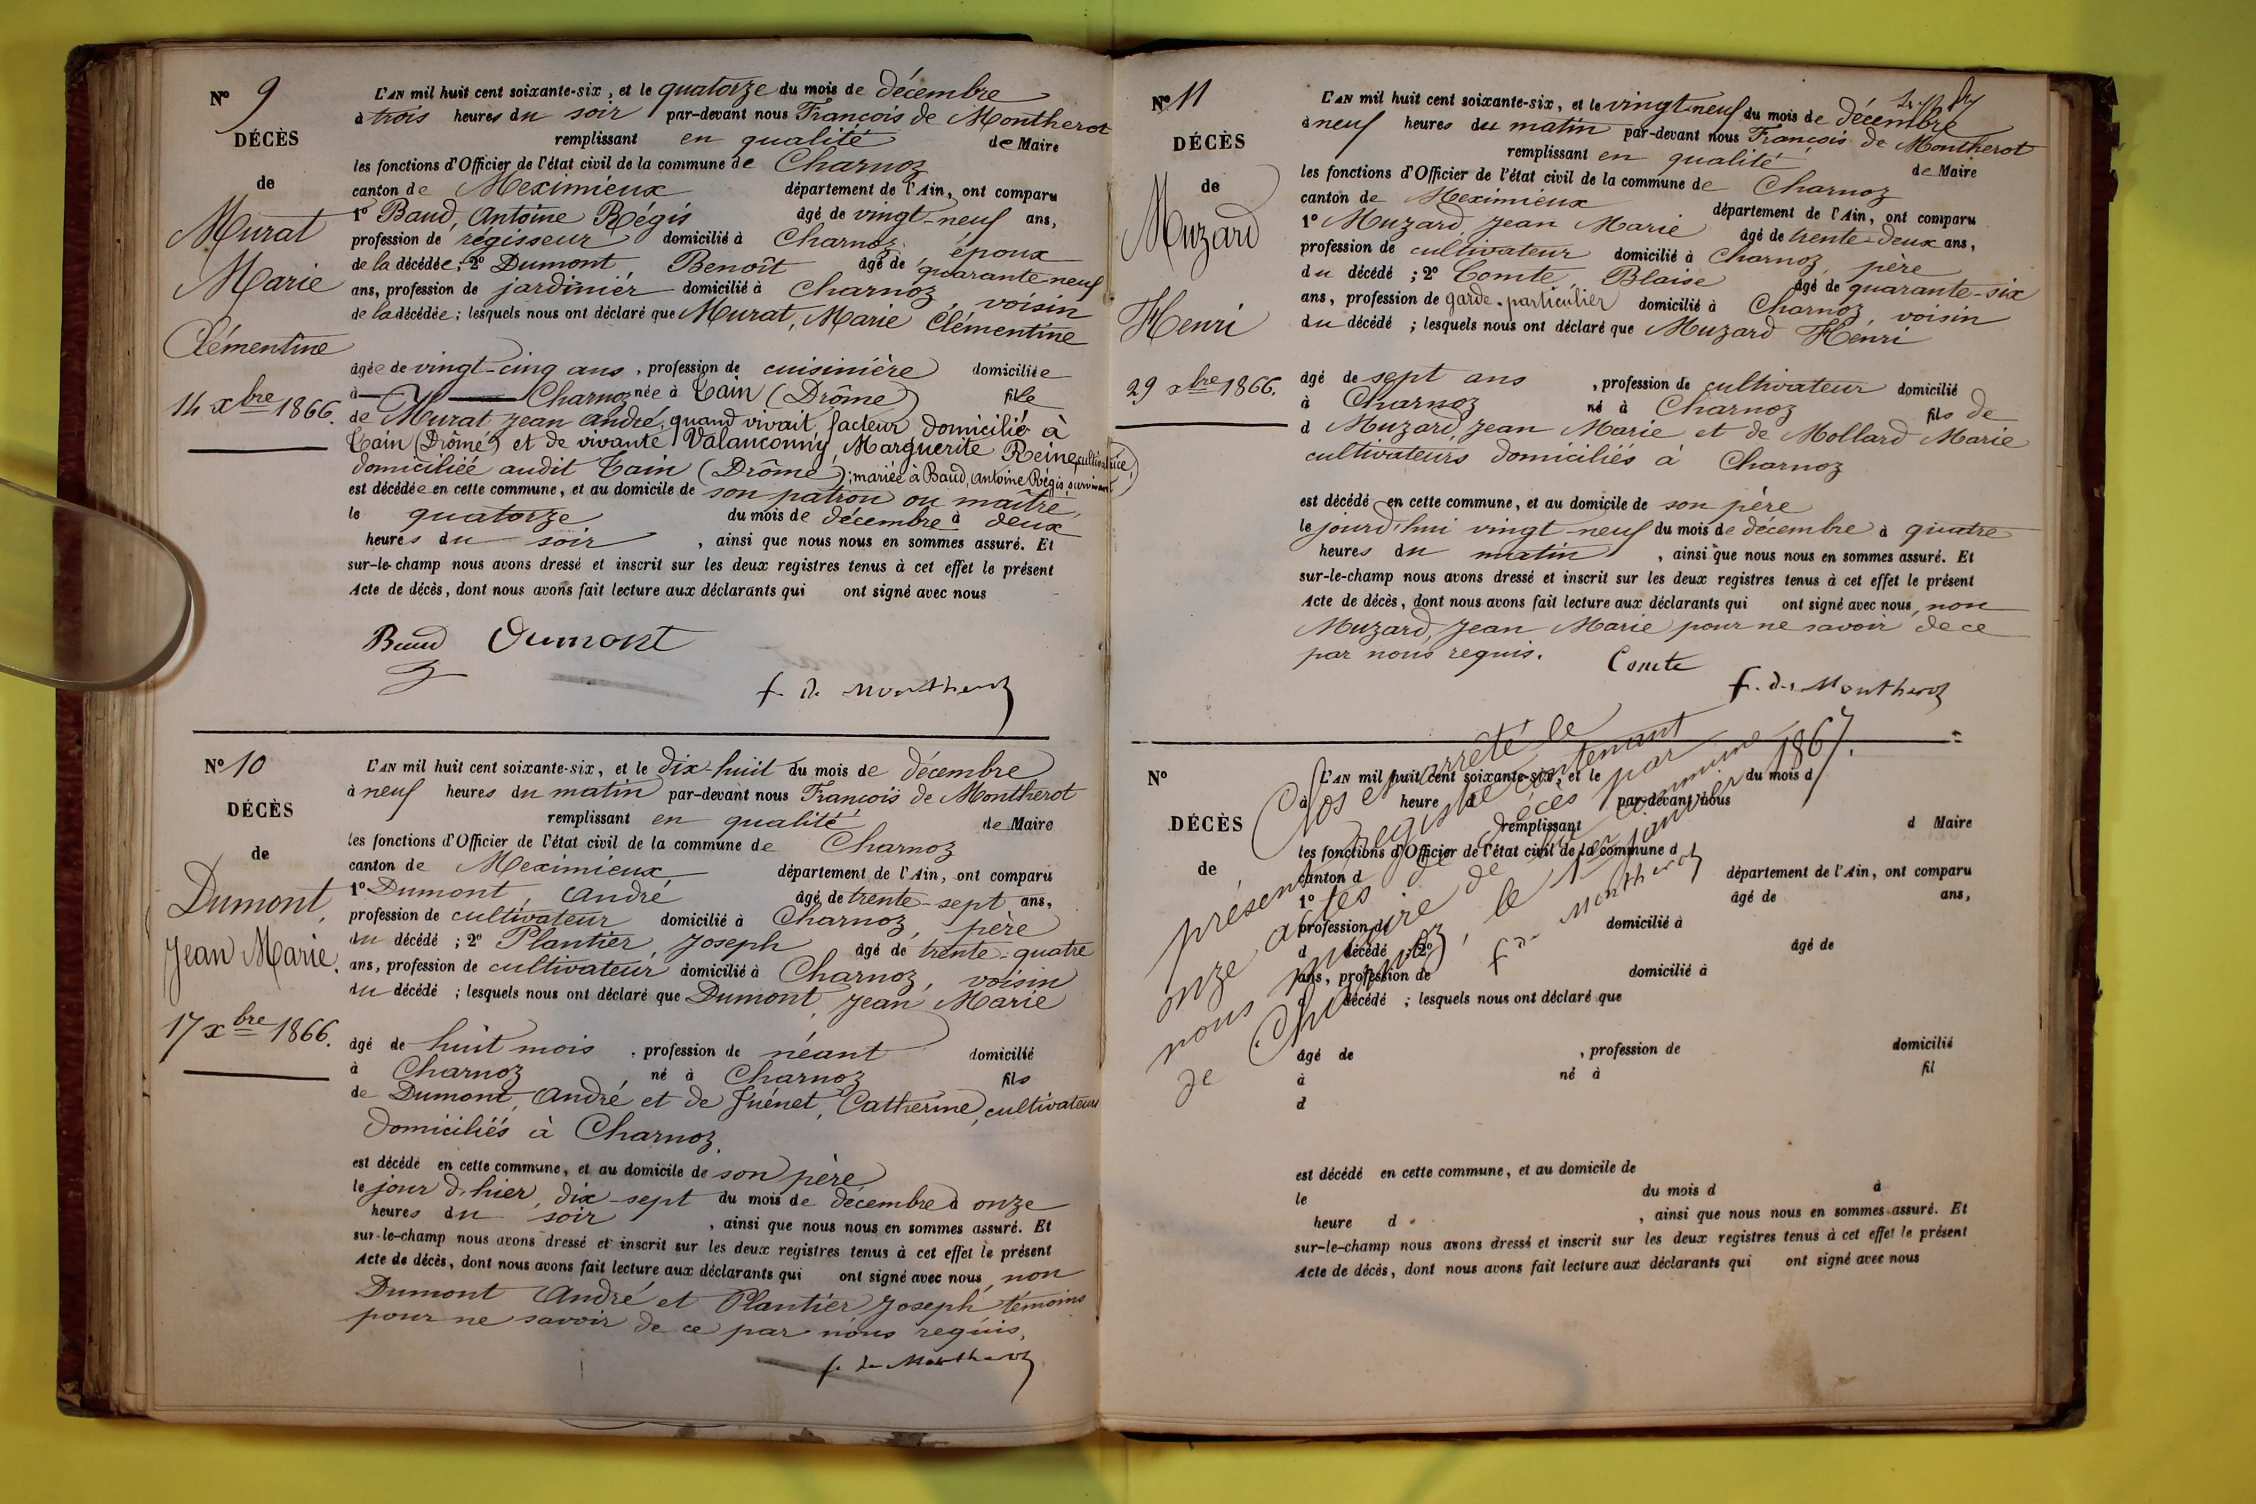 N° 9
DÉCÈS
de
Murat
Marie
Clémentine
14 xbre 1866.
L'AN mil huit cent soixante-six, et le quatorze du mois de décembre
à trois heures du soir par-devant nous François de Montherot
remplissant en qualité de Maire
les fonctions d'Officier de l'état civil de la commune de Charnoz
canton de Meximieux département de l'Ain, ont comparu
1° Baud, Antoine Régis âgé de vingt-neuf ans,
profession de régisseur domicilié à Charnoz, époux
de la décédée; 2° Dumont Benoît âgé de quarante neuf
ans, profession de jardinier domicilié à Charnoz, voisin
de la décédée; lesquels nous ont déclaré que Murat, Marie Clémentine
âgée de vingt-cinq ans, profession de cuisinière domiciliée
à Charnoz née à Tain (Drôme) fille
de Murat Jean André, quand vivait facteur domicilié à
Tain (Drôme) et de vivante Valancony, Marguerite Reine, cultivatrice
domiciliée audit Tain (Drôme); mariée à Baud, Antoine Régis, survivant
est décédée en cette commune, et au domicile de son patron ou maître,
le quatorze du mois de décembre à deux
heures du soir, ainsi que nous nous en sommes assuré. Et
sur-le-champ nous avons dressé et inscrit sur les deux registres tenus à cet effet le présent
Acte de décès, dont nous avons fait lecture aux déclarants qui ont signé avec nous
Baud Dumont
f. de Montherot
N° 10
DÉCÈS
de
Dumont,
Jean Marie.
17 xbre 1866.
L'AN mil huit cent soixante-six, et le dix-huit du mois de décembre
à neuf heures du matin par-devant nous François de Montherot
remplissant en qualité de Maire
les fonctions d'Officier de l'état civil de la commune de Charnoz
canton de Meximieux département de l'Ain, ont comparu
1° Dumont, André âgé de trente-sept ans,
profession de cultivateur domicilié à Charnoz, père
du décédé; 2° Plantier, Joseph âgé de trente-quatre
ans, profession de cultivateur domicilié à Charnoz, voisin
du décédé; lesquels nous ont déclaré que Dumont, Jean Marie
âgé de huit mois, profession de néant domicilié
à Charnoz né à Charnoz fils
de Dumont, André et de Juénet, Catherine, cultivateurs
domiciliés à Charnoz,
est décédé en cette commune, et au domicile de son père
le jour d'hier, dix-sept du mois de décembre à onze
heures du soir, ainsi que nous nous en sommes assuré. Et
sur-le-champ nous avons dressé et inscrit sur les deux registres tenus à cet effet le présent
Acte de décès, dont nous avons fait lecture aux déclarants qui ont signé avec nous, non
Dumont André et Plantier Joseph témoins
pour ne savoir de ce par nous requis,
f. de Montherot
N° 11
DÉCÈS
de
Muzard
Henri
29 xbre 1866.
L'AN mil huit cent soixante-six, et le vingt-neuf du mois de décembre
à neuf heures du matin par-devant nous François de Montherot
remplissant en qualité de Maire
les fonctions d'Officier de l'état civil de la commune de Charnoz
canton de Meximieux département de l'Ain, ont comparu
1° Muzard, Jean Marie âgé de trente-deux ans,
profession de cultivateur domicilié à Charnoz, père
du décédé; 2° Comte, Blaise âgé de quarante-six
ans, profession de garde-particulier domicilié à Charnoz, voisin
du décédé; lesquels nous ont déclaré que Muzard Henri
âgé de sept ans, profession de cultivateur domicilié
à Charnoz né à Charnoz fils de
d Muzard, Jean Marie et de Mollard Marie
cultivateurs domiciliés à Charnoz
est décédé en cette commune, et au domicile de son père
le jourd'hui vingt-neuf du mois de décembre à quatre
heures du matin, ainsi que nous nous en sommes assuré. Et
sur-le-champ nous avons dressé et inscrit sur les deux registres tenus à cet effet le présent
Acte de décès, dont nous avons fait lecture aux déclarants qui ont signé avec nous, non
Muzard, Jean Marie pour ne savoir de ce
par nous requis. Comte
f. de Montherot
Clos et arrêté le
présent registre contenant
onze actes de décès par
nous maire de la commune
de Charnoz, le 1er janvier 1867.
fs de Montherot
N°
DÉCÈS
de
L'AN mil huit cent soixante-six, et le du mois d
à heure d par-devant nous
remplissant d Maire
les fonctions d'Officier de l'état civil de la commune d
canton d département de l'Ain, ont comparu
1° âgé de ans,
profession d domicilié à
d décédé; 2° âgé de
ans, profession de domicilié à
d décédé; lesquels nous ont déclaré que
âgé de , profession de domicilié
à né à fil
d
est décédé en cette commune, et au domicile de
le du mois d à
heure d , ainsi que nous nous en sommes assuré. Et
sur-le-champ nous avons dressé et inscrit sur les deux registres tenus à cet effet le présent
Acte de décès, dont nous avons fait lecture aux déclarants qui ont signé avec nous